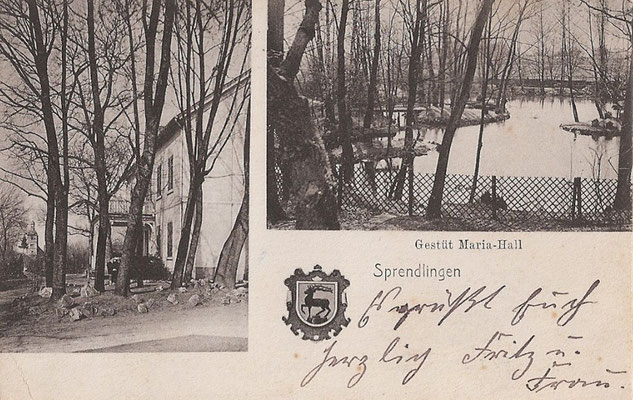 Gestüt Maria-Hall
Sprendlingen
Es grüßt Euch
herzlich Fritz u.
Frau.